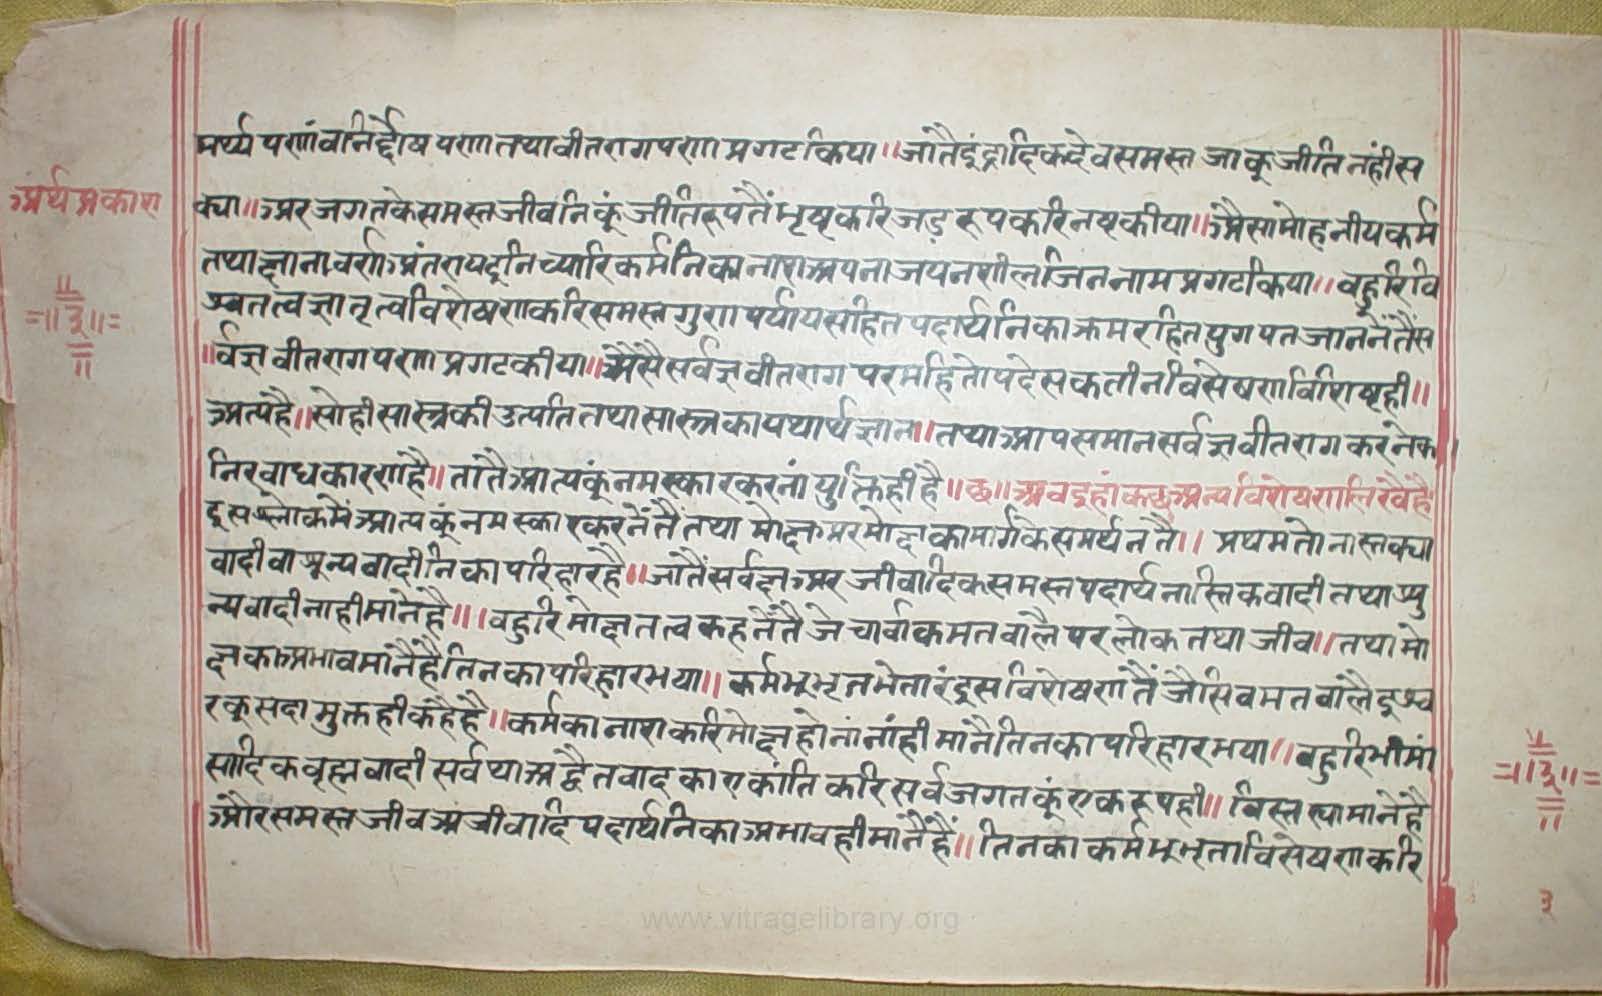 मर्थ्य पणांवानिर्द्दोष पणातथावीतरागपणा प्रगटकिया॥जातैइंद्रादिकदेवसमस्त जाकू जीतिनंहीस
अर्थप्रकाश
क्या॥अरजगतकेसमस्तजीवनिकूंजीति करिजडरूपकरिनष्टकीया॥अैसामोहनीयकर्म
तथाज्ञानावर्णअंतरायइनिच्यारिकर्मनिकानाशअपनाजयनशीलजिननामप्रगटकिया॥वहुरिवि
॥३॥
श्वतत्वज्ञातृत्वविशेषणकरिसमस्तगुणपर्यायसहितपदार्थनिकाक्रमरहितयुगपतजाननेंतैंस
र्वज्ञवीतरागपणाप्रगटकीया॥अैसैसर्वज्ञवीतरागपरमहितोपदेस विसेषणविशिष्टही॥
आप्तहै॥सोहीसास्त्रकीउत्पतितथासास्त्रकायथार्थज्ञान॥तथाआपसमानसर्वज्ञवीतरागकरनेका
निरवाधकारणहै॥तातैआप्तकूंनमस्कारकरनांयुक्तिहीहै॥छ॥अवइहांकछुअन्यविशेषणलिखैहै
इसश्लोकमेंआप्तकूंनमस्कारकरनेंतैंतथा मोक्षअरमोक्षकामार्गकेसमर्थनतै॥ प्रथमतोनास्तक्या
वादीवाशून्यवादीनिकापरिहारहै॥जातैंसर्वज्ञअरजीवादिकसमस्तपदार्थनास्तिकवादीतथाशु
न्यवादीनाहीमानेहै॥।वहुरिमोक्षतत्वकहनेंतैजेचार्वाकमतवालैपरलोकतथाजीव॥तथामो
क्षकाअभावमांनैहैतिनकापरिहारभया॥ कर्मभूभृतभेतारंइसविशेषणतैंजैसिवमतवालैइश्व
रकूसदामुक्तहीकहैहै॥कर्मकानाशकरिमोक्षहोनांनांहीमांनैतिनकापरिहारभया॥वहुरिमीमां
॥३॥
सादिकवृह्मवादीसर्वथाअद्वैतवादकाएकांतिकरिसर्वजगतकूंएकरूपही॥ मानेहै
औरसमस्तजीवअजीवादिपदार्थनिकाअभावहीमांनैंहैं॥तिनकाकर्मभूभृताविसेषणकरि
३
www.vitragelibrary.org